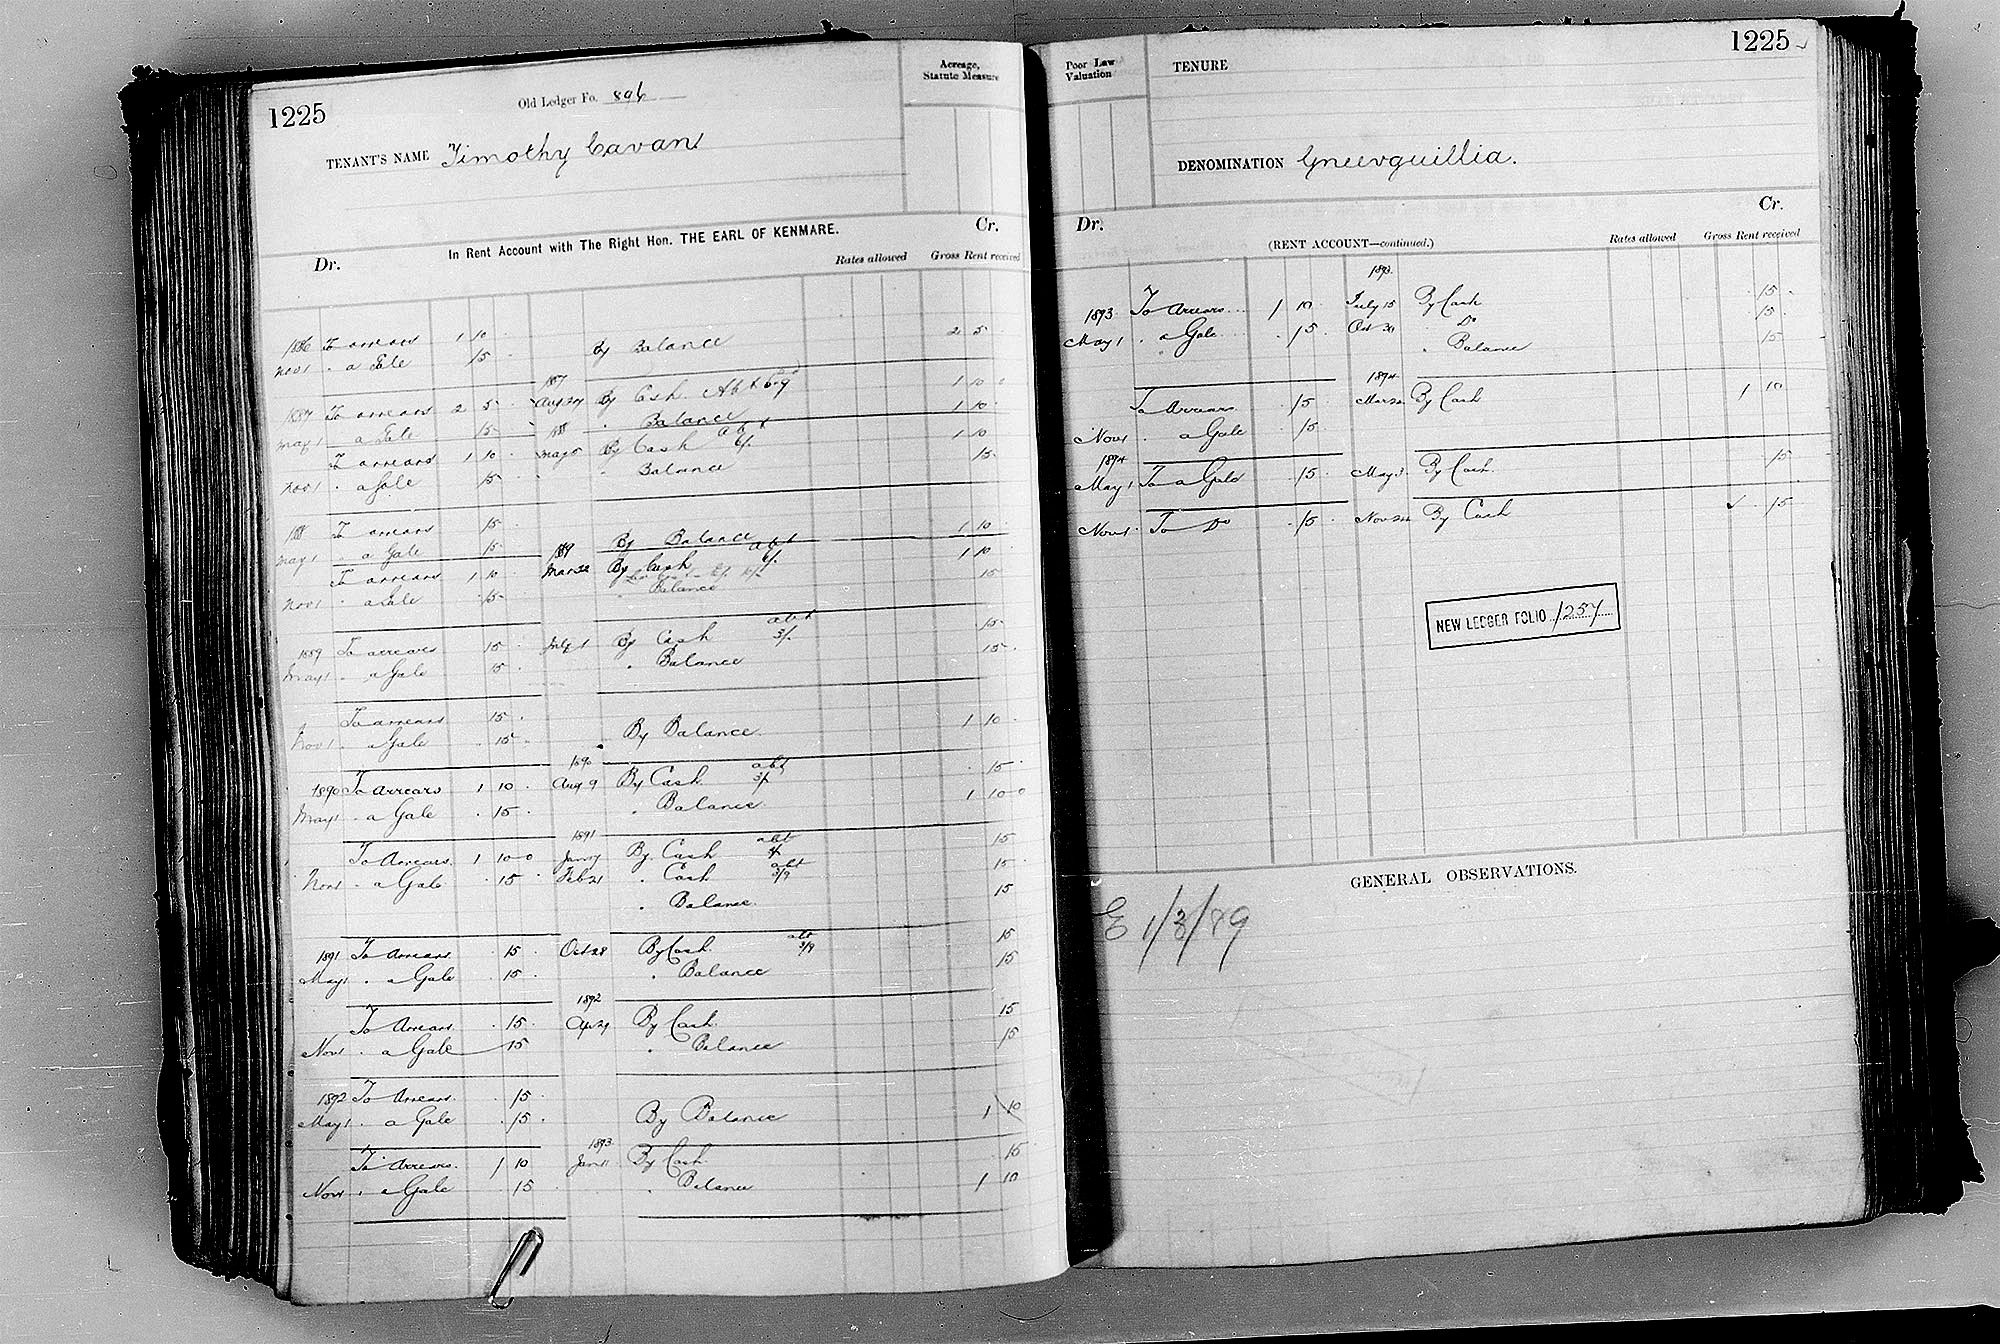 1225
Old Ledger Fo. 896
Acreage,
Statute Measure
TENANT'S NAME Timothy Cavan
In Rent Account with The Right Hon. THE EARL OF KENMARE.
Dr.
Cr.
Rates allowed
Gross Rent received
1886 To arrears 1 10
Nov 1 . a Gale 15 By Balance 2 5
1887
1887 To arrears 2 5 Aug 24 By Cash 1 10 0
May 1 . a Gale 15 . Balance 1 10
188
To arrears 1 10 May 5 By Cash 1 10
Nov 1 . a Gale 15 Balance 15
188 To arrears 15
May 1 . a Gale 15 By Balance 1 10
1889 abt
To arrears 1 10 Mar 22 By Cash 6/. 1 10
Nov 1 . a Gale 15 . Balance 15
abt
1889 To arrears 15 July 1 By Cash 3/. 15
May 1 . a Gale 15 . Balance 15
To arrears 15
Nov 1 . a Gale 15 By Balance 1 10
1890 abt
1890 To arrears 1 10 Aug 9 By Cash 3/. 15
May 1 . a Gale 15 . Balance 1 10 0
1891 abt
To Arrears 1 10 0 Jan 7 By Cash 15
abt
Nov 1 . a Gale 15 Feb 21 . Cash 3/9 15
. Balance 15
abt
1891 To Arrears 15 Oct 28 By Cash 3/9 15
May 1 . a Gale 15 . Balance 15
1892
To Arrears 15 Ap 29 By Cash 15
Nov 1 . a Gale 15 . Balance 15
1892 To Arrears 15
May 1 . a Gale 15 By Balance 1 10
1893
To Arrears 1 10 Jan 11 By Cash 15
Nov 1 . a Gale 15 . Balance 1 10
1225
Poor Law
Valuation
TENURE
DENOMINATION Gneevguillia.
Dr.
Cr.
(RENT ACCOUNT—continued.)
Rates allowed
Gross Rent received
1893
1893 To Arrears 1 10 July 15 By Cash 15
May 1 . a Gale 15 Oct 30 Do 15
. Balance 15
1894
To Arrears 15 Mar 20 By Cash 1 10
Nov 1 . a Gale 15
1894
May 1 To a Gale 15 May 3 By Cash 15
Nov 1 To Do 15 Nov 20 By Cash 15
NEW LEDGER FOLIO 1257
GENERAL OBSERVATIONS.
E 1/3/89